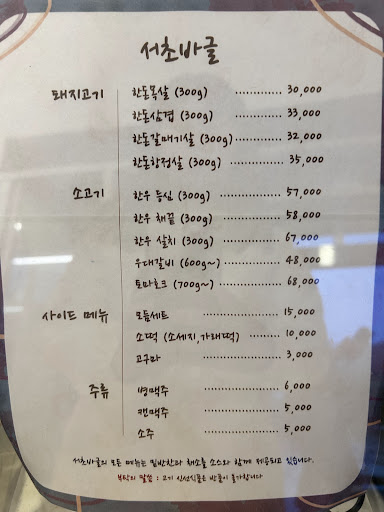 서초바글
돼지고기
한돈목살 (300g) ............. 30,000
한돈삼겹 (300g) ............. 33,000
한돈갈매기살 (300g) ............. 32,000
한돈항정살 (300g) ............. 35,000
소고기
한우 등심 (300g) ............. 57,000
한우 채끝 (300g) ............. 58,000
한우 살치 (300g) ............. 67,000
우대갈비 (600g~) ............. 48,000
토마호크 (700g~) ............. 68,000
사이드 메뉴
모듬세트 ............. 15,000
소떡 (소세지,가래떡) ............. 10,000
고구마 ............. 3,000
주류
병맥주 ............. 6,000
캔맥주 ............. 5,000
소주 ............. 5,000
서초바글의 모든 메뉴는 밑반찬과 채소및 소스와 함께 제공되고 있습니다.
부탁의 말씀 : 고기 신선식품은 반품이 불가합니다